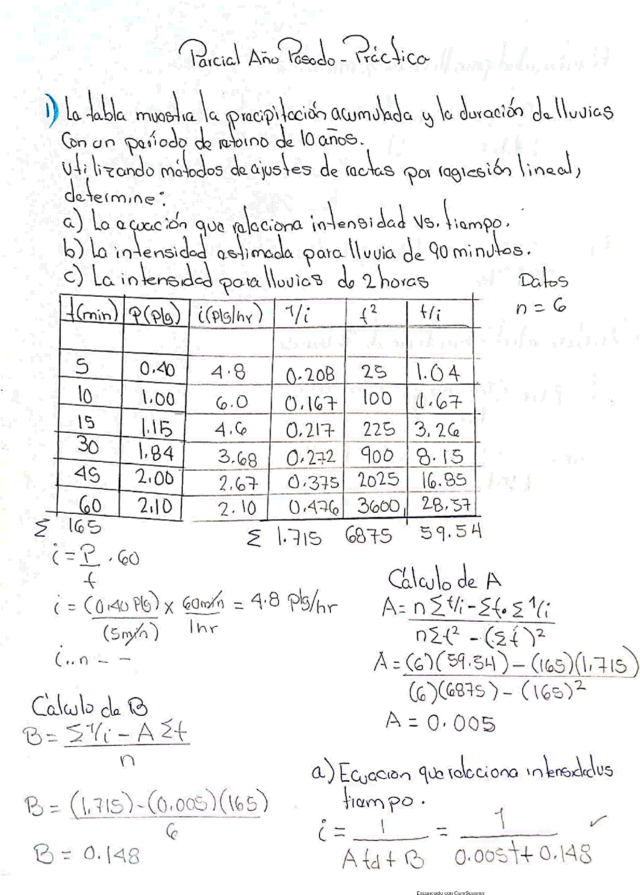 Parcial Año Pasado - Práctica
1) La tabla muestra la precipitación acumulada y la duración de lluvias
con un período de retorno de 10 años.
Utilizando métodos de ajustes de rectas por regresión lineal,
determine:
a) La ecuación que relaciona intensidad Vs. tiempo.
b) La intensidad estimada para lluvia de 90 minutos.
c) La intensidad para lluvias de 2 horas
Datos
n = 6
t(min) P(Plg) i(Plg/hr) 1/i t² t/i
5 0.40 4.8 0.208 25 1.04
10 1.00 6.0 0.167 100 1.67
15 1.15 4.6 0.217 225 3.26
30 1.84 3.68 0.272 900 8.15
45 2.00 2.67 0.375 2025 16.85
60 2.10 2.10 0.476 3600 28.57
Σ 165 Σ 1.715 6875 59.54
i = P/t . 60
i = (0.40 Plg)/(5min) x 60min/1hr = 4.8 Plg/hr
i..n - -
Cálculo de A
A = nΣt/i - Σt.Σ1/i
nΣt² - (Σt)²
A = (6)(59.54) - (165)(1.715)
(6)(6875) - (165)²
A = 0.005
Cálculo de B
B = Σ1/i - AΣt
n
B = (1.715) - (0.005)(165)
6
B = 0.148
a) Ecuacion que relaciona intensidadus
tiempo.
i = 1/(Atd + B) = 1/(0.005t + 0.148) ✓
Escaneado con CamScanner